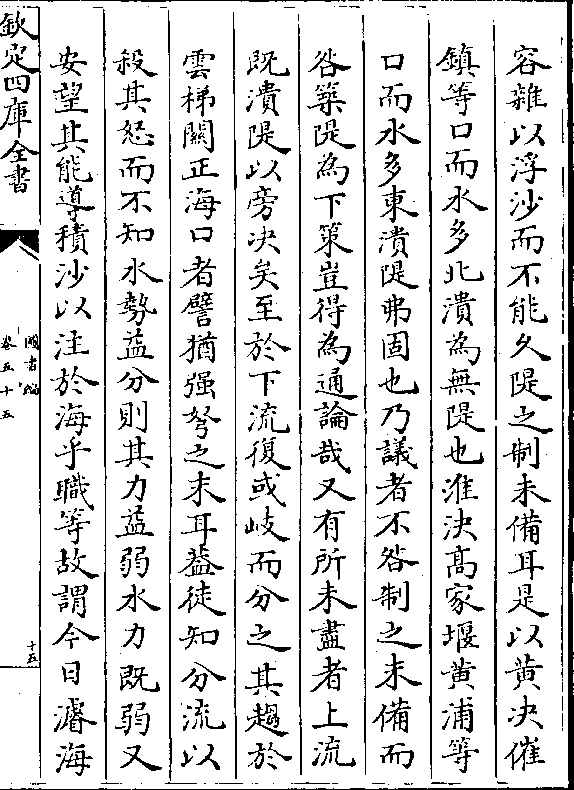 容雜以浮沙而不能久隄之制未備耳是以黄决催
鎮等口而水多北潰為無隄也淮決髙家堰黄浦等
口而水多東潰隄弗固也乃議者不咎制之未備而
咎築隄為下策豈得為通論哉又有所未盡者上流
既潰隄以旁决矣至於下流復或岐而分之其趨於
雲梯關正海口者譬猶强弩之末耳葢徒知分流以
殺其怒而不知水勢益分則其力益弱水力既弱又
安望其能導積沙以注於海乎職等故謂今日濬海
欽定四庫全書
圖書編
卷五十五
十五